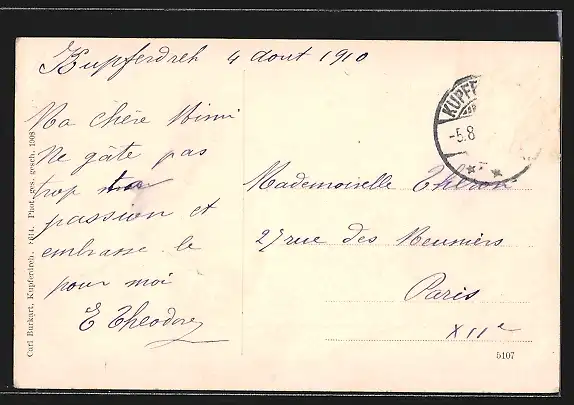 Kupferdreh 4 aout 1910
Ma chère Mimi
Ne gâte pas
trop
passion et
embrasse le
pour moi
E Theodore
KUPFE
-5.8
Mademoiselle Theron
27 rue des Meuniers
Paris
XIIe
5107
Carl Burkart, Kupferdreh. Phot. ges. gesch. 1908